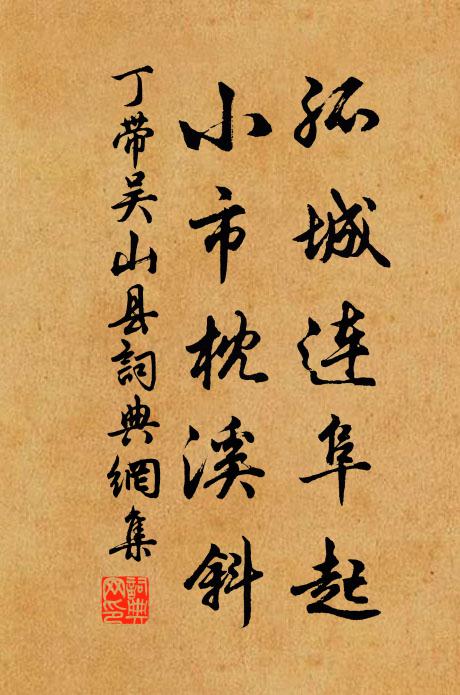 孤城连阜起
小市枕溪斜
丁带吴山县詞典網集
詞典網印